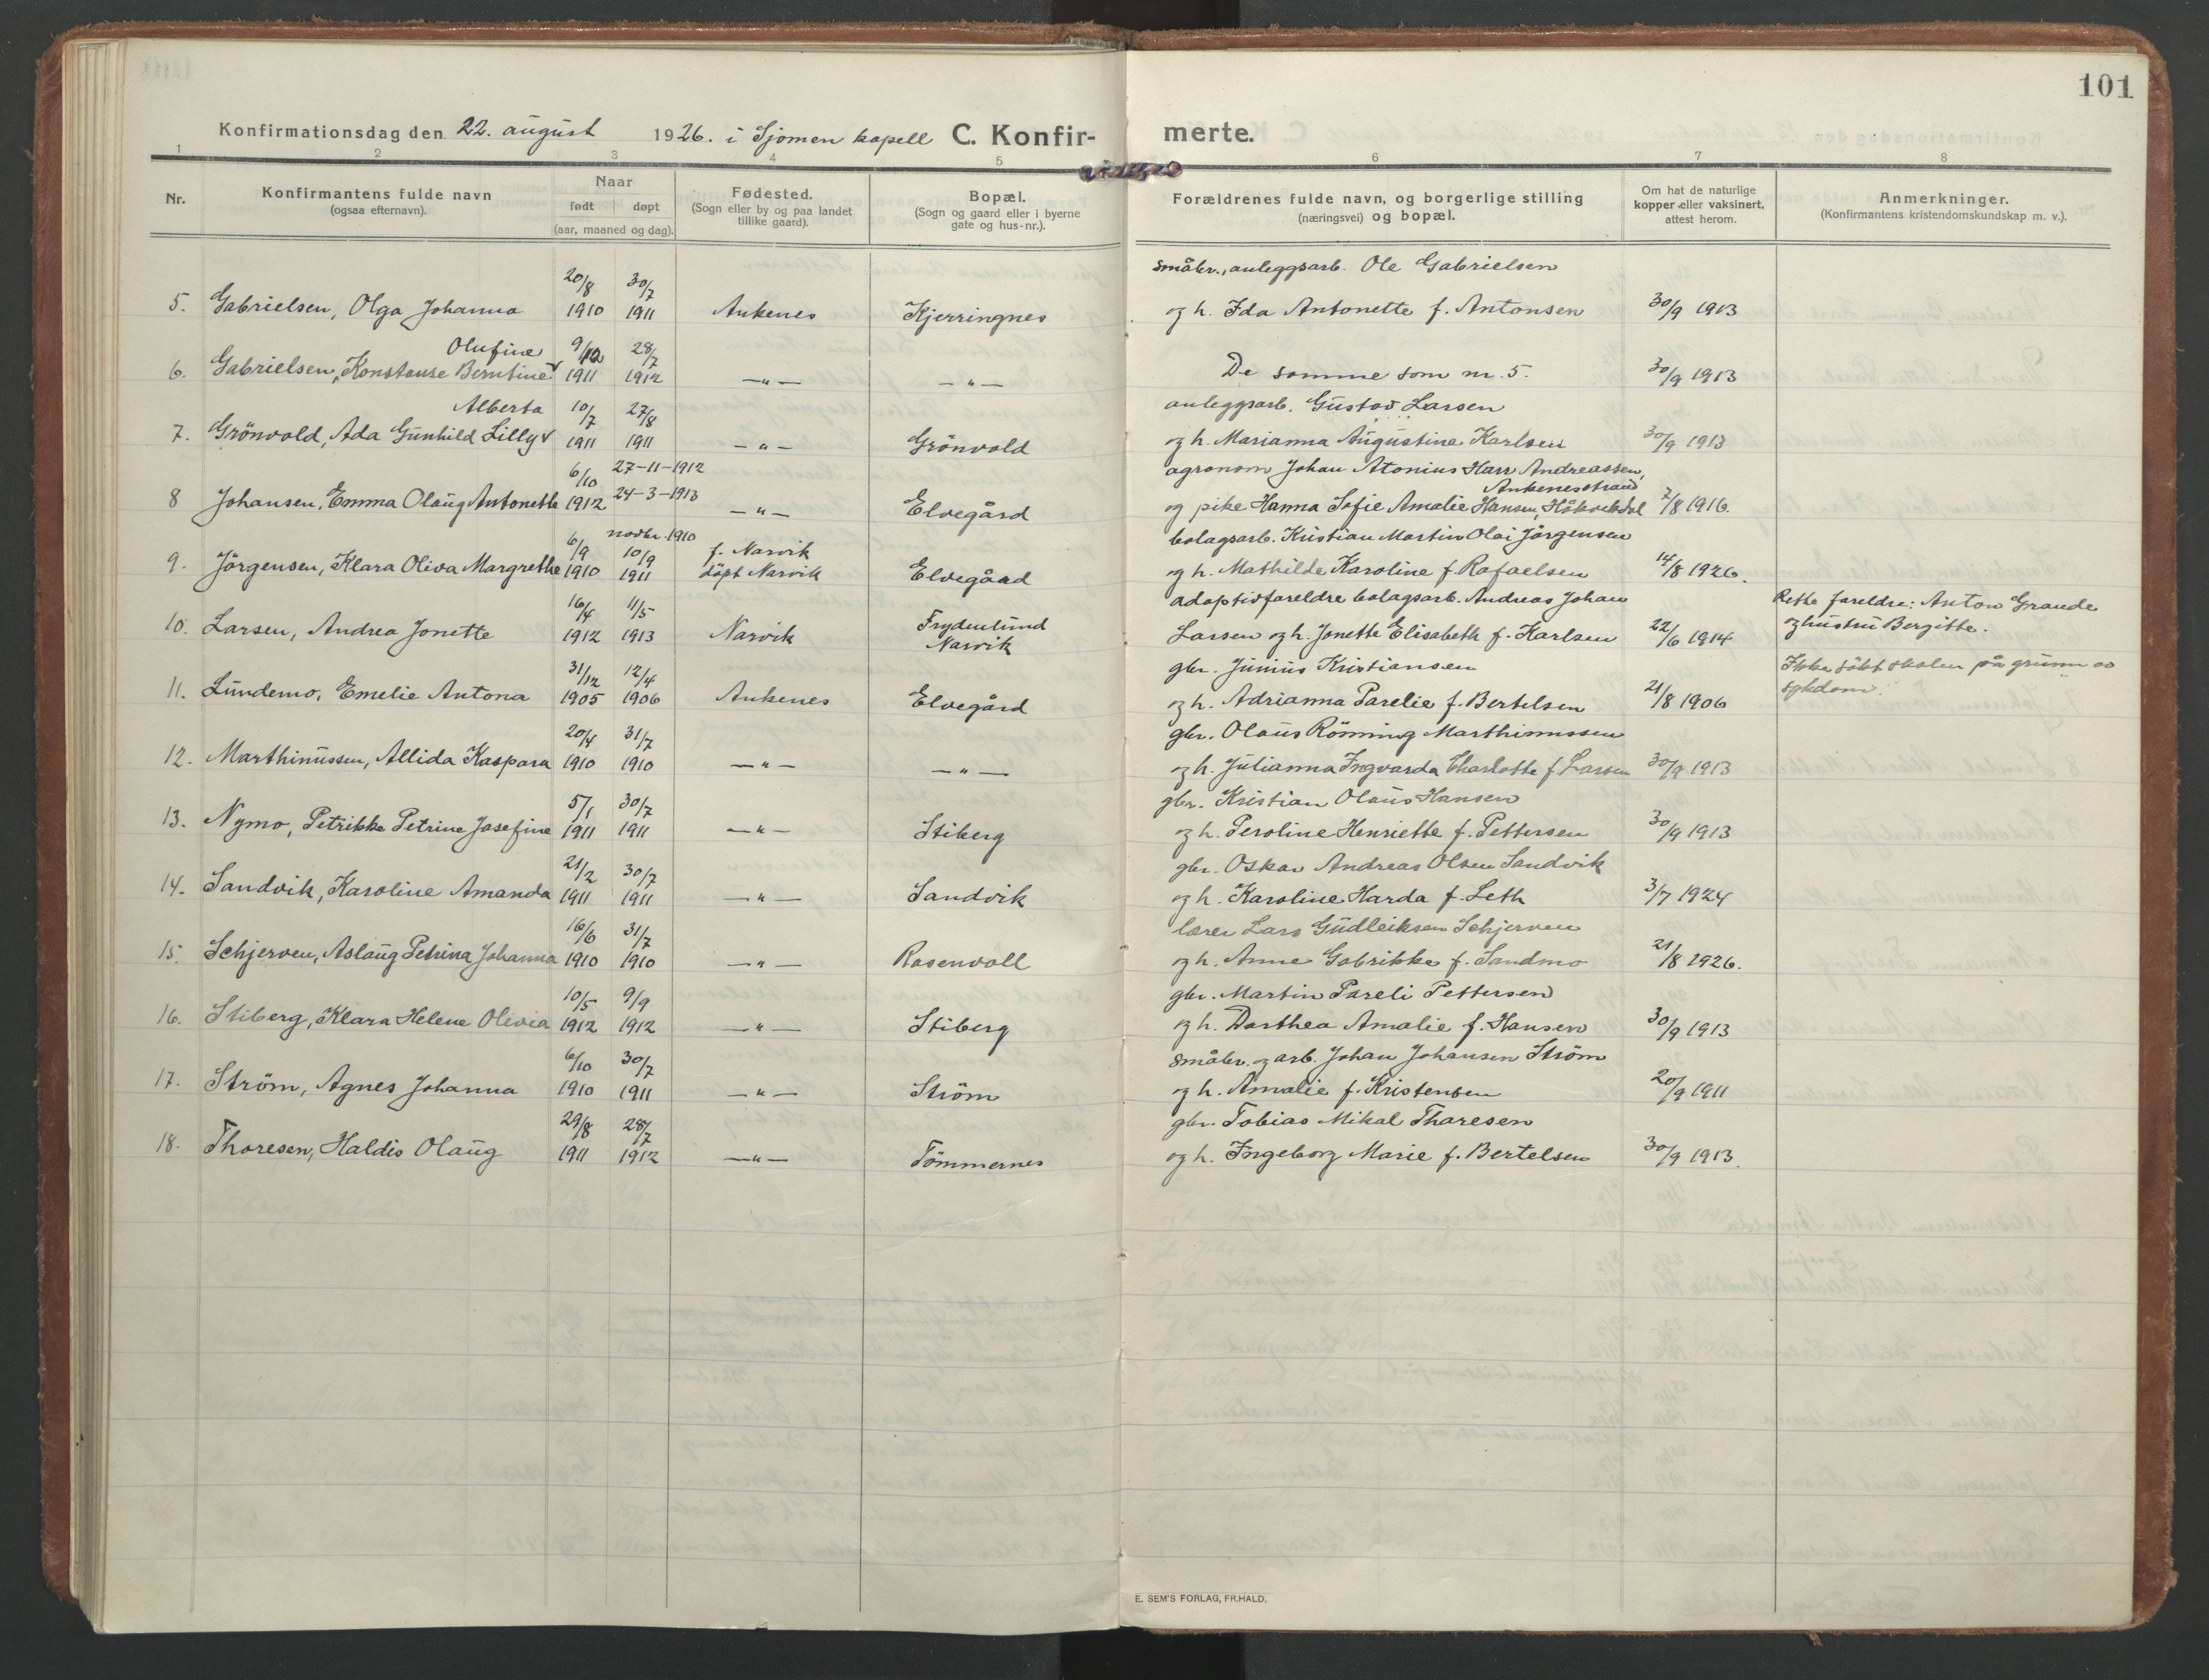 101
Konfirmationsdag den 22. august 1926. i Sjomen kapell C. Konfir- merte.
1 2 3 4 5 6 7 8
Nr.
Konfirmantens fulde navn
(ogsaa efternavn).
Naar
født døpt
(aar, maaned og dag).
Fødested.
(Sogn eller by og paa landet
tillike gaard).
Bopæl.
(Sogn og gaard eller i byerne
gate og hus-nr.).
Forældrenes fulde navn, og borgerlige stilling
(næringsvei) og bopæl.
Om hat de naturlige
kopper eller vaksinert,
attest herom.
Anmerkninger.
(Konfirmantens kristendomskundskap m. v.).
20/8 30/7 småbr., anleggsarb. Ole Gabrielsen
5. Gabrielsen, Olga Johanna 1910 1911 Ankenes Kjerringnes og h. Ida Antonette f. Antonsen 30/9 1913
Olufine 9/12 28/7
6. Gabrielsen, Konstanse Berntine 1911 1912 —"— —"— De samme som nr. 5. 30/9 1913
Alberta 10/7 27/8 anleggsarb. Gustav Larsen
7. Grönvold, Ada Gunhild Lilly 1911 1911 —"— Grönvold og h. Marianna Augustina Karlsen 30/9 1913
6/10 27-11-1912 agronom Johan Atonius Harr Andreassen,
Ankenesstrand
8 Johansen, Emma Olaug Antonette 1912 24-3-1913 —"— Elvegård og pike Hanna Sofie Amalie Hansen, Håkvikdal 7/8 1916.
6/9 novbr. 1910 10/9 f. Narvik bolagsarb. Kristian Martin Olai Jörgensen
9. Jörgensen, Klara Oliva Margrethe 1910 1911 döpt Narvik Elvegård og h. Mathilde Karoline f. Rafaelsen 14/8 1926.
16/4 11/5 Frydenlund adoptivforeldre bolagsarb. Andreas Johan Rette foreldre: Anton Grande
10. Larsen, Andrea Jonette 1912 1913 Narvik Narvik Larsen og h. Jonette Elisabeth f. Karlsen 22/6 1914 og hustru Bergitte.
31/12 12/4 gbr. Junius Kristiansen Ikke sökt skolen på grunn av
11. Lundemo, Emelie Antona 1905 1906 Ankenes Elvegård og h. Adrianna Parelie f. Bertelsen 21/8 1906 sykdom.
20/4 31/7 gbr. Olaus Rönning Marthinussen
12. Marthinussen, Allida Kaspara 1910 1910 —"— —"— og h. Julianna Ingvarda Charlotte f. Larsen 30/9 1913
5/1 30/7 gbr. Kristian Olaus Hansen
13. Nymo, Petrikke Petrine Josefine 1911 1911 —"— Stiberg og h. Peroline Henriette f. Pettersen 30/9 1913
21/2 30/7 gbr. Oskar Andreas Olsen Sandvik
14. Sandvik, Karoline Amanda 1911 1911 —"— Sandvik og h. Karoline Harda f. Leth 3/7 1924
16/6 31/7 lærer Lars Gudleiksen Schjerven
15. Schjerven, Aslaug Petrina Johanna 1910 1910 —"— Rosenvoll og h. Anne Gabrikke f. Sandmo 21/8 1926.
10/5 9/9 gbr. Martin Pareli Pettersen
16. Stiberg, Klara Helene Olivia 1912 1912 —"— Stiberg og h. Dorthea Amalie f. Hansen 30/9 1913
6/10 30/7 småbr. og arb. Johan Johansen Ström
17. Ström, Agnes Johanna 1910 1911 —"— Ström og h. Amalie f. Kristensen 20/9 1911
29/8 28/7 gbr. Tobias Mikal Thoresen
18. Thoresen, Haldis Olaug 1911 1912 —"— Tömmernes og h. Ingeborg Marie f. Bertelsen 30/9 1913.
E. SEM'S FORLAG, FR.HALD.